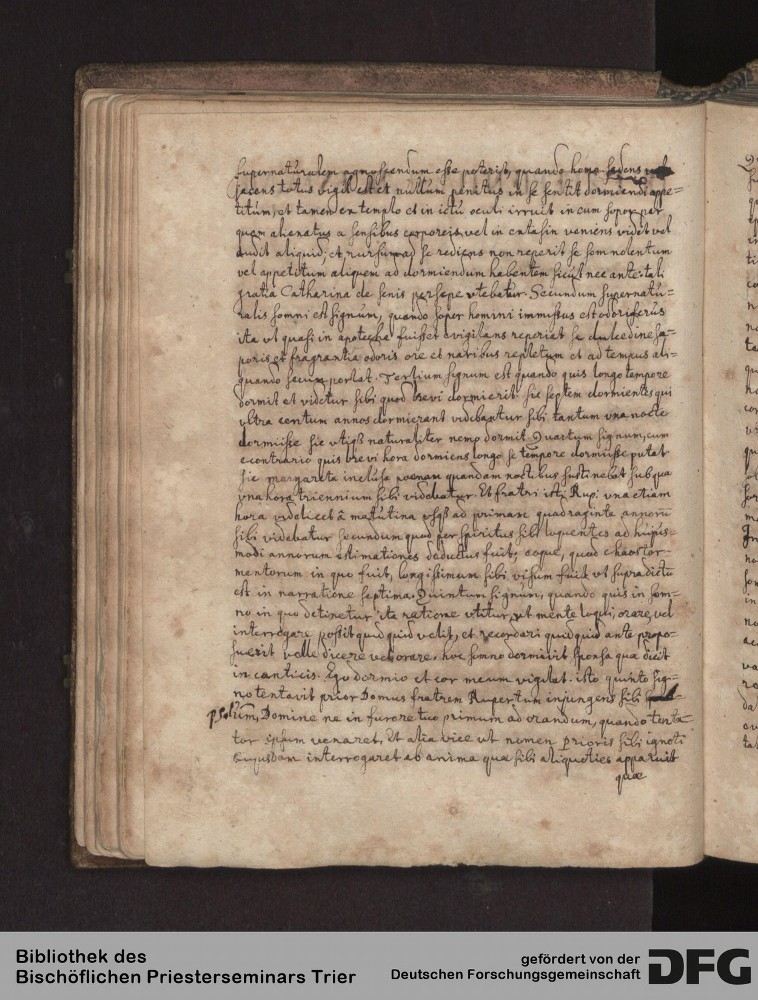 supernaturalem agnoscendum esse poterit, quando homo sedens vel
jacens totus vigil est et nullum penitus in se sentit dormiendi appe=
titum, et tamen ex templo et in ictu oculi irruit in eum sopor per
quem alienatus a sensibus corporeis vel in extasin veniens videt vel
audit aliquid, et rursum ad se rediens non reperit se somnolentum
vel appetitum aliquem ad dormiendum habentem sicut nec ante: tali
gratia Catharina de senis persaepe utebatur. Secundum supernatu=
ralis somni est signum, quando sopor homini immissus est odoriferus
ita ut quasi in apotheca fuisset evigilans reperiat se dulcedine sa=
poris et fragrantia odoris ore et naribus repletum et ad tempus ali=
quando secum portat. Tertium signum est quando quis longo tempore
dormit et videtur sibi quod brevi dormierit. sic septem dormientes qui
ultra centum annos dormierant videbantur sibi tantum una nocte
dormiisse sic utiq naturaliter nemo dormit. Quartum signum, cum
econtrario quis brevi hora dormiens longo se tempore dormiisse putat
sic margareta inclusa poenam quandam noctibus sustinebat sub qua
una hora triennium sibi videbatur. Et fratri isti Rup: una etiam
hora videlicet â matutina usq ad primam quadraginta annorū
sibi videbatur secundum quod per spiritus sibi loquentes ad hujus=
modi annorum estimationes deductus fuit, eoque, quod chaos tor=
mentorum in quo fuit, longissimum sibi visum fuit ut supradictū
est in narratione septima. Quintum signum, quando quis in som=
no in quo detinetur ita ratione utitur, ut mente loqui, orare, vel
interrogare possit quidquid velit, et recordari quidquid ante propo=
suerit velle dicere vel orare. hoc somno dormivit sponsa quae dicit
in canticis. Ego dormio et cor meum vigilat. isto quinto sig=
no tentavit prior Domus fratrem Rupertum injungens sibi
psalmum, Domine ne in furore tuo primum ad orandum, quando tenta=
tor ipsum vexaret, Et alia vice ut nomen prioris sibi ignoti
cujusdam interrogaret ab anima quae sibi aliquoties apparuit
quae
Bibliothek des
Bischöflichen Priesterseminars Trier
gefördert von der
Deutschen Forschungsgemeinschaft
DFG